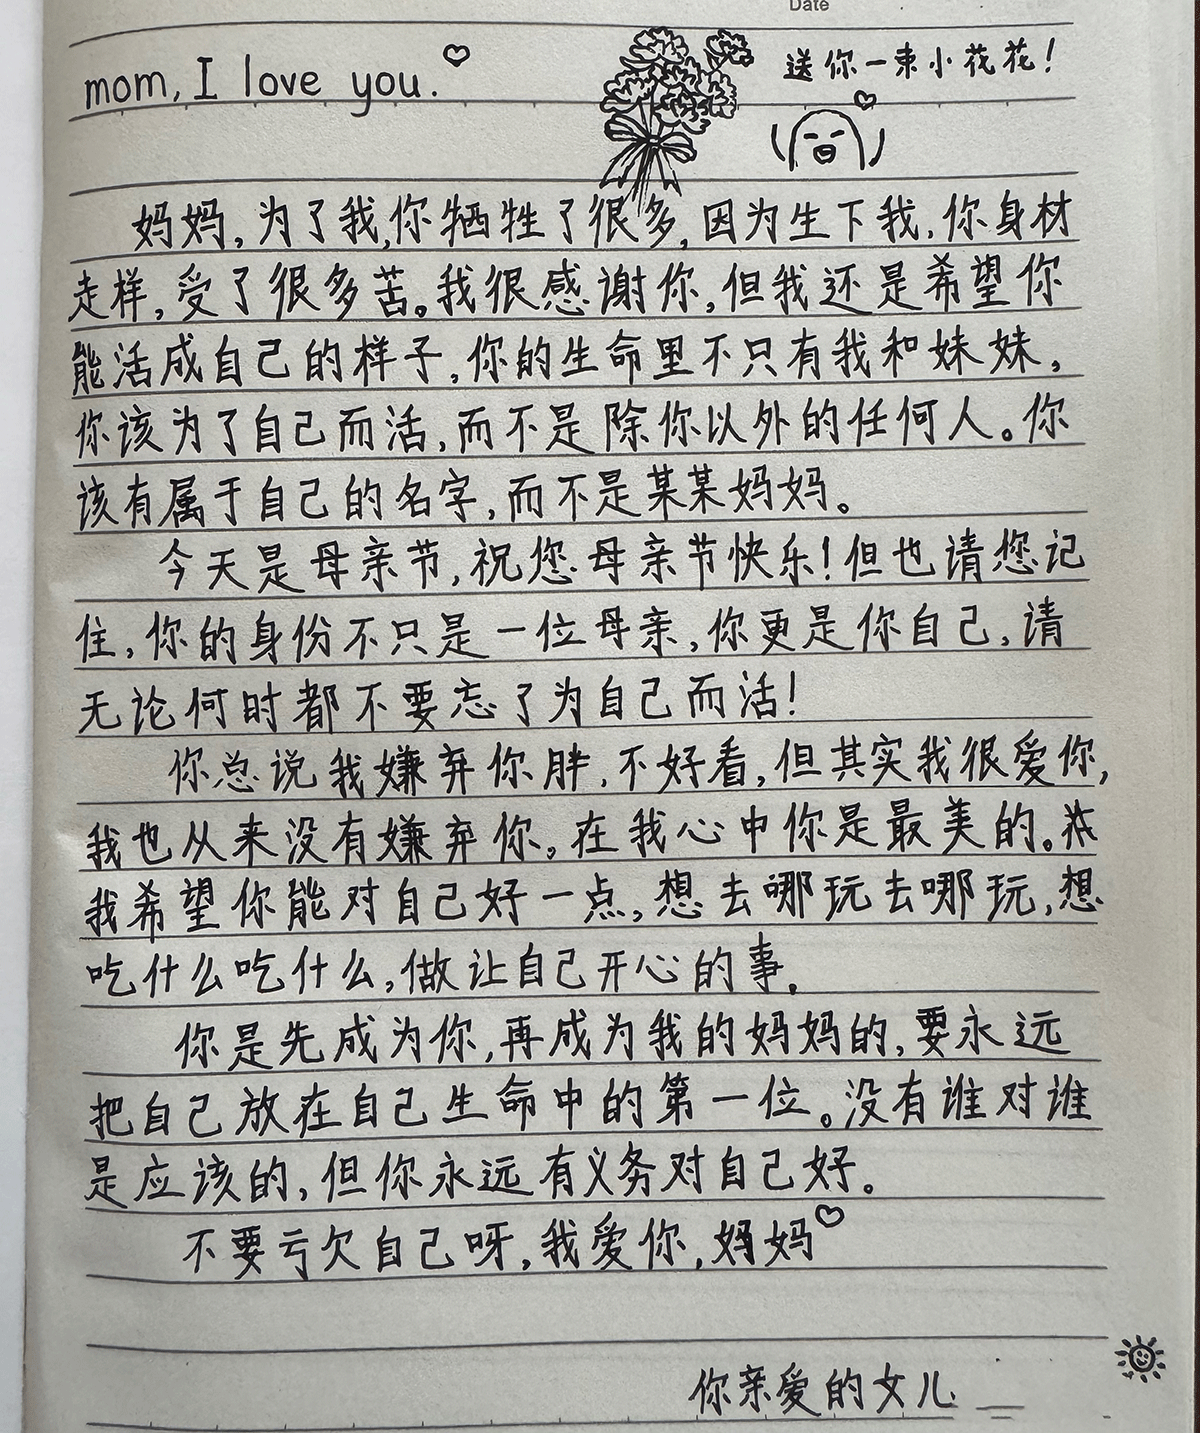 Date
mom, I love you.
送你一束小花花！
妈妈，为了我，你牺牲了很多，因为生下我，你身材
走样，受了很多苦。我很感谢你，但我还是希望你
能活成自己的样子，你的生命里不只有我和妹妹，
你该为了自己而活，而不是除你以外的任何人。你
该有属于自己的名字，而不是某某妈妈。
今天是母亲节，祝您母亲节快乐！但也请您记
住，你的身份不只是一位母亲，你更是你自己，请
无论何时都不要忘了为自己而活！
你总说我嫌弃你胖，不好看，但其实我很爱你，
我也从来没有嫌弃你。在我心中你是最美的。
我希望你能对自己好一点，想去哪玩去哪玩，想
吃什么吃什么，做让自己开心的事。
你是先成为你，再成为我的妈妈的，要永远
把自己放在自己生命中的第一位。没有谁对谁
是应该的，但你永远有义务对自己好。
不要亏欠自己呀，我爱你，妈妈
你亲爱的女儿